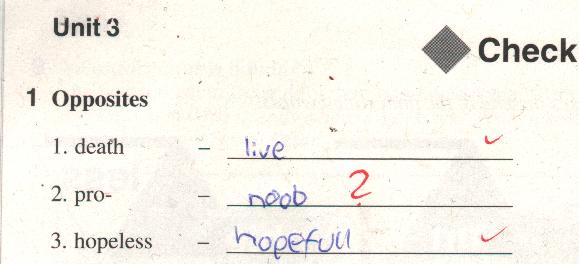 Unit 3
Check
1 Opposites
1. death – live ✓
2. pro- – noob ?
3. hopeless – hopefull ✓